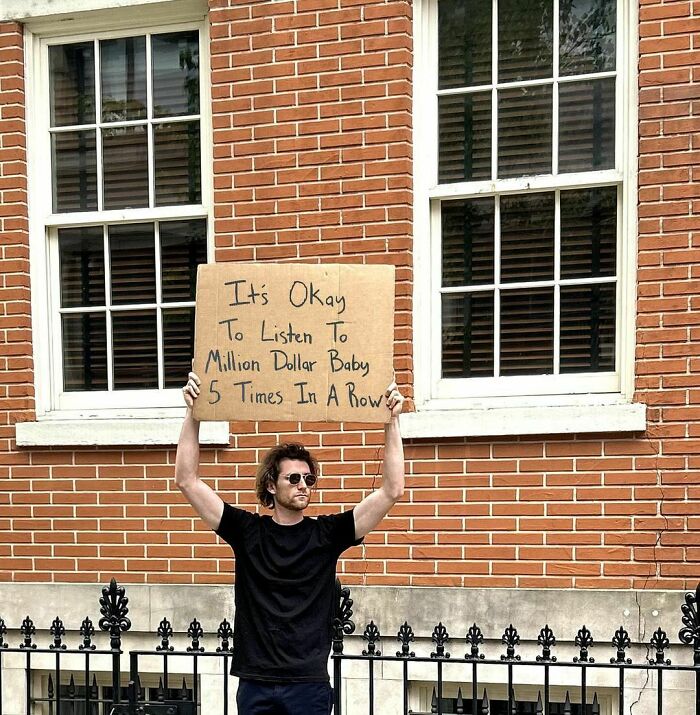 It's Okay
To Listen To
Million Dollar Baby
5 Times In A Row